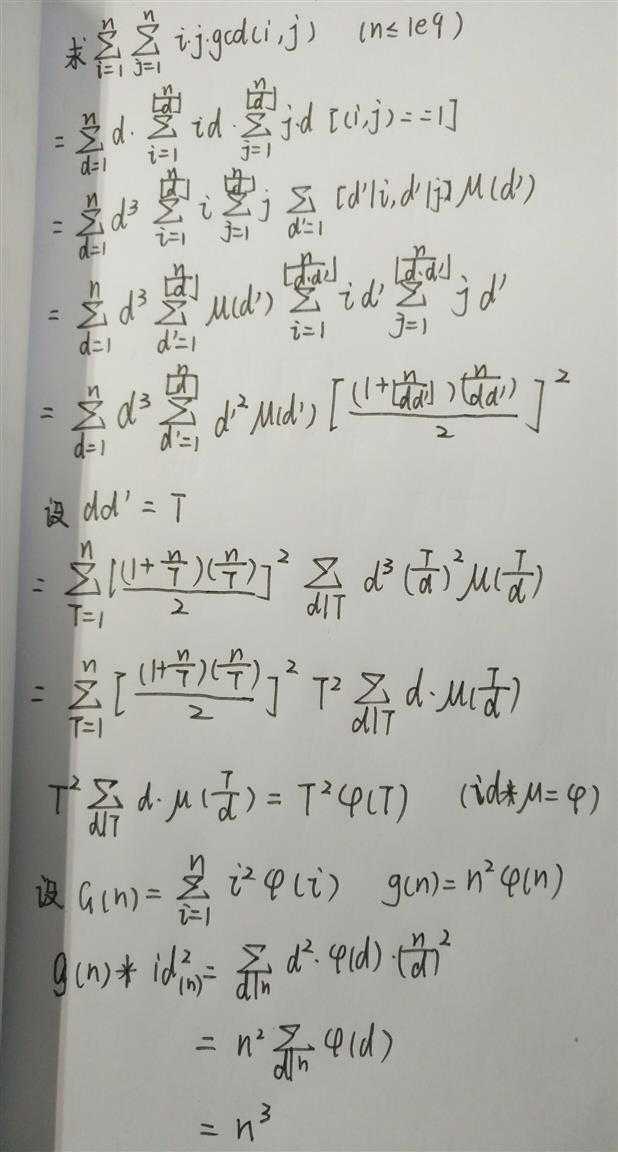 求 $\sum_{i=1}^{n} \sum_{j=1}^{n} i \cdot j \cdot gcd(i,j)$ (n ≤ 1e9)
$= \sum_{d=1}^{n} d \cdot \sum_{i=1}^{[\frac{n}{d}]} id \cdot \sum_{j=1}^{[\frac{n}{d}]} j \cdot d \ [(i,j)==1]$
$= \sum_{d=1}^{n} d^3 \sum_{i=1}^{[\frac{n}{d}]} i \sum_{j=1}^{[\frac{n}{d}]} j \sum_{d'=1} [d'|i, d'|j] \mu(d')$
$= \sum_{d=1}^{n} d^3 \sum_{d'=1}^{[\frac{n}{d}]} \mu(d') \sum_{i=1}^{[\frac{n}{d \cdot d'}]} i d' \sum_{j=1}^{[\frac{n}{d \cdot d'}]} j d'$
$= \sum_{d=1}^{n} d^3 \sum_{d'=1}^{[\frac{n}{d}]} d'^2 \mu(d') [\frac{(1+[\frac{n}{dd'}])(\frac{n}{dd'})}{2}]^2$
设 dd' = T
$= \sum_{T=1}^{n} [\frac{(1+\frac{n}{T})(\frac{n}{T})}{2}]^2 \sum_{d|T} d^3 (\frac{T}{d})^2 \mu(\frac{T}{d})$
$= \sum_{T=1}^{n} [\frac{(1+\frac{n}{T})(\frac{n}{T})}{2}]^2 T^2 \sum_{d|T} d \cdot \mu(\frac{T}{d})$
$T^2 \sum_{d|T} d \cdot \mu(\frac{T}{d}) = T^2 \varphi(T)$ (id*μ=φ)
设 $G(n) = \sum_{i=1}^{n} i^2 \varphi(i)$ $g(n) = n^2 \varphi(n)$
$g(n) * id^2_{(n)} = \sum_{d|n} d^2 \cdot \varphi(d) \cdot (\frac{n}{d})^2$
$= n^2 \sum_{d|n} \varphi(d)$
$= n^3$